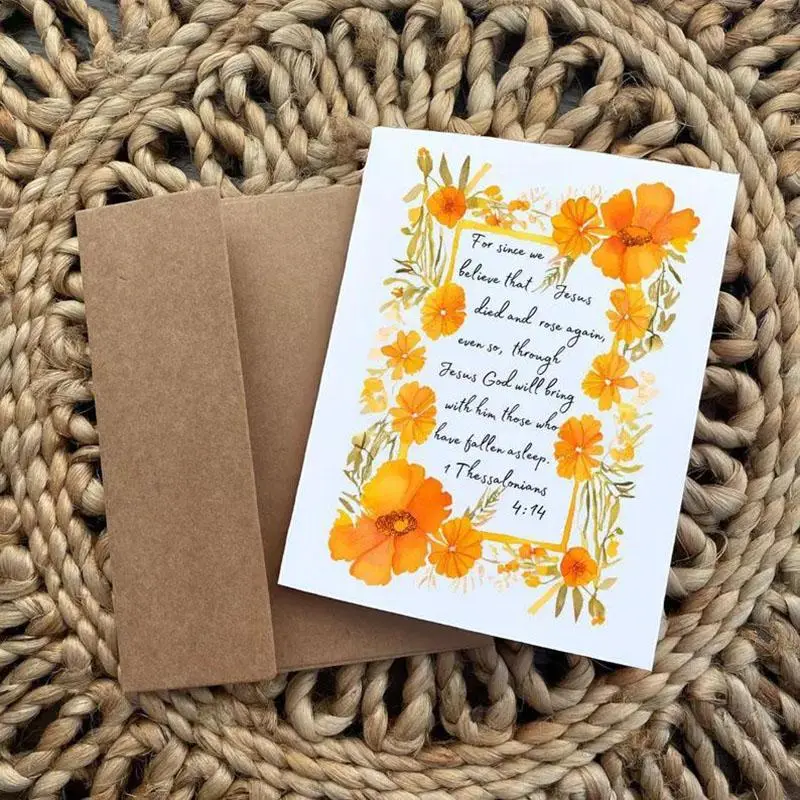 For since we
believe that Jesus
died and rose again,
even so, through
Jesus God will bring
with him those who
have fallen asleep.
1 Thessalonians
4:14